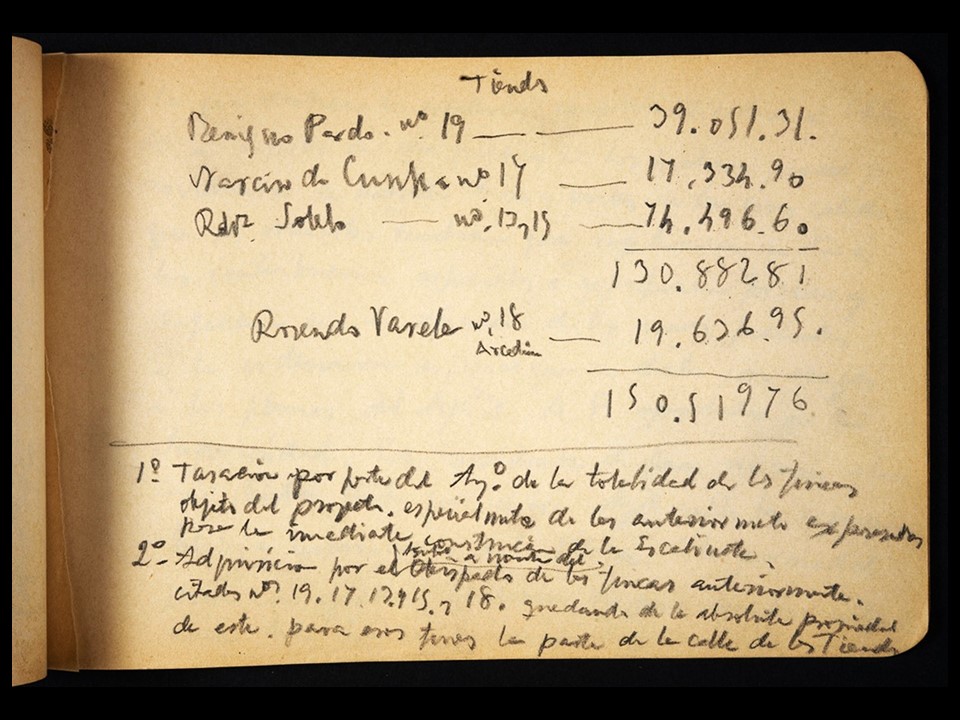 Tiendas
Benigno Pardo. nº 19 — — 39.051.31.
Narciso da Cunha nº 17 — 17.334.90
Rdrz. Sotelo — nº. 13, 15 — 74.496.60
130.88281
Rosendo Varela nº. 18 — 19.636.95.
150.51976
1º Tasación por parte del Ayº. de la totalidad de las fincas
objeto del proyecto. especialmente de las anteriormente expresadas
para la inmediata construcción de la Escalinata.
2º- Adquisición por el Obispado de las fincas anteriormente.
citadas nos 19. 17. 13 y 15. y 18. quedando de la absoluta propiedad
de este. para esos fines la parte de la calle de las Tiendas